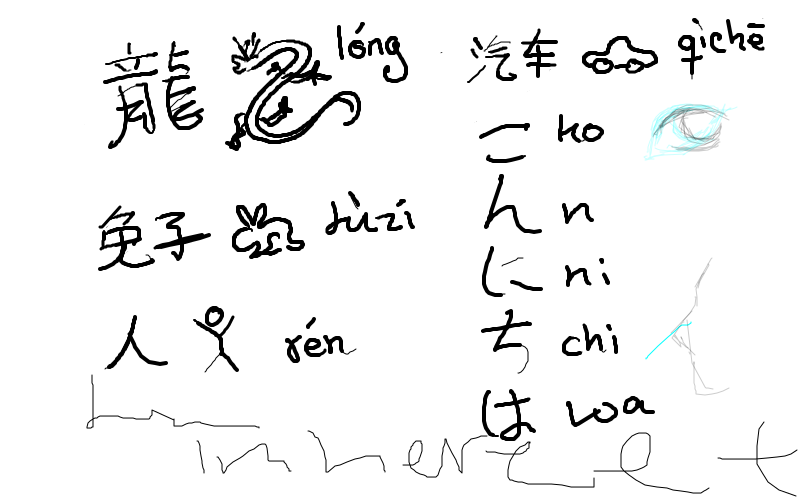 龍 lóng
免子 tùzí
人 rén
汽车 qìchē
こ ko
ん n
に ni
ち chi
は wa